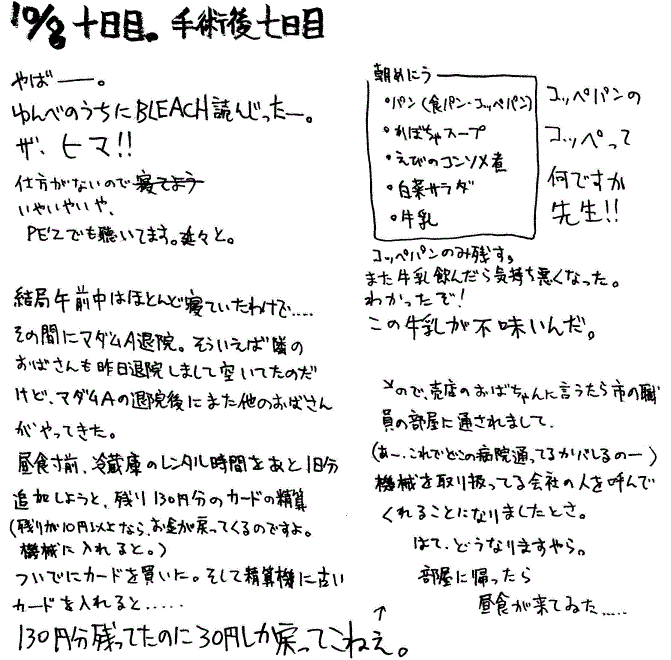 10/8 十日目。手術後七日目
やばーー。
ゆんべのうちにBLEACH読んじったー。
ザ、ヒマ!!
仕方がないので寝てよう
いやいやいや、
PE'Zでも聴いてます。延々と。
結局午前中はほとんど寝ていたわけで.....
その間にマダムA退院。そういえば隣の
おばさんも昨日退院しまして空いてたのだ
けど、マダムAの退院後にまた他のおばさん
がやってきた。
昼食寸前、冷蔵庫のレンタル時間をあと1日分
追加しようと、残り130円分のカードの精算
(残りが10円以上なら、お金が戻ってくるのですよ。
機械に入れると。)
ついでにカードを買いた。そして精算機に古い
カードを入れると.....
130円分残ってたのに30円しか戻ってこねぇ。
朝めにう
・パン(食パン・コッペパン)
・かぼちゃスープ
・えびのコンソメ煮
・白菜サラダ
・牛乳
コッペパンの
コッペって
何ですか
先生!!
コッペパンのみ残す。
また牛乳飲んだら気持ち悪くなった。
わかったぞ!
この牛乳が不味いんだ。
↘ので、売店のおばちゃんに言うたら市の職
員の部屋に通されまして、
(あー、これでどこの病院通ってるかバレるのー)
機械を取り扱ってる会社の人を呼んで
くれることになりましたとさ。
はて、どうなりますやら。
部屋に帰ったら
昼食が来てゐた.....
↑